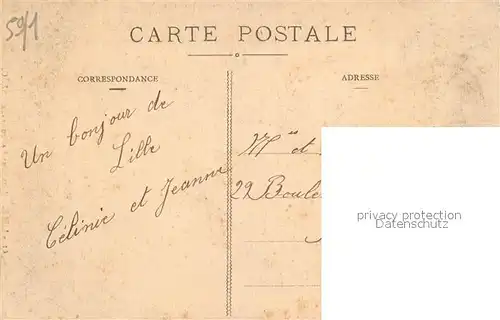 59/1
CARTE POSTALE
CORRESPONDANCE
ADRESSE
Un bonjour de
Lille
Célinie et Jeanne
et
29 Boule
privacy protection
Datenschutz